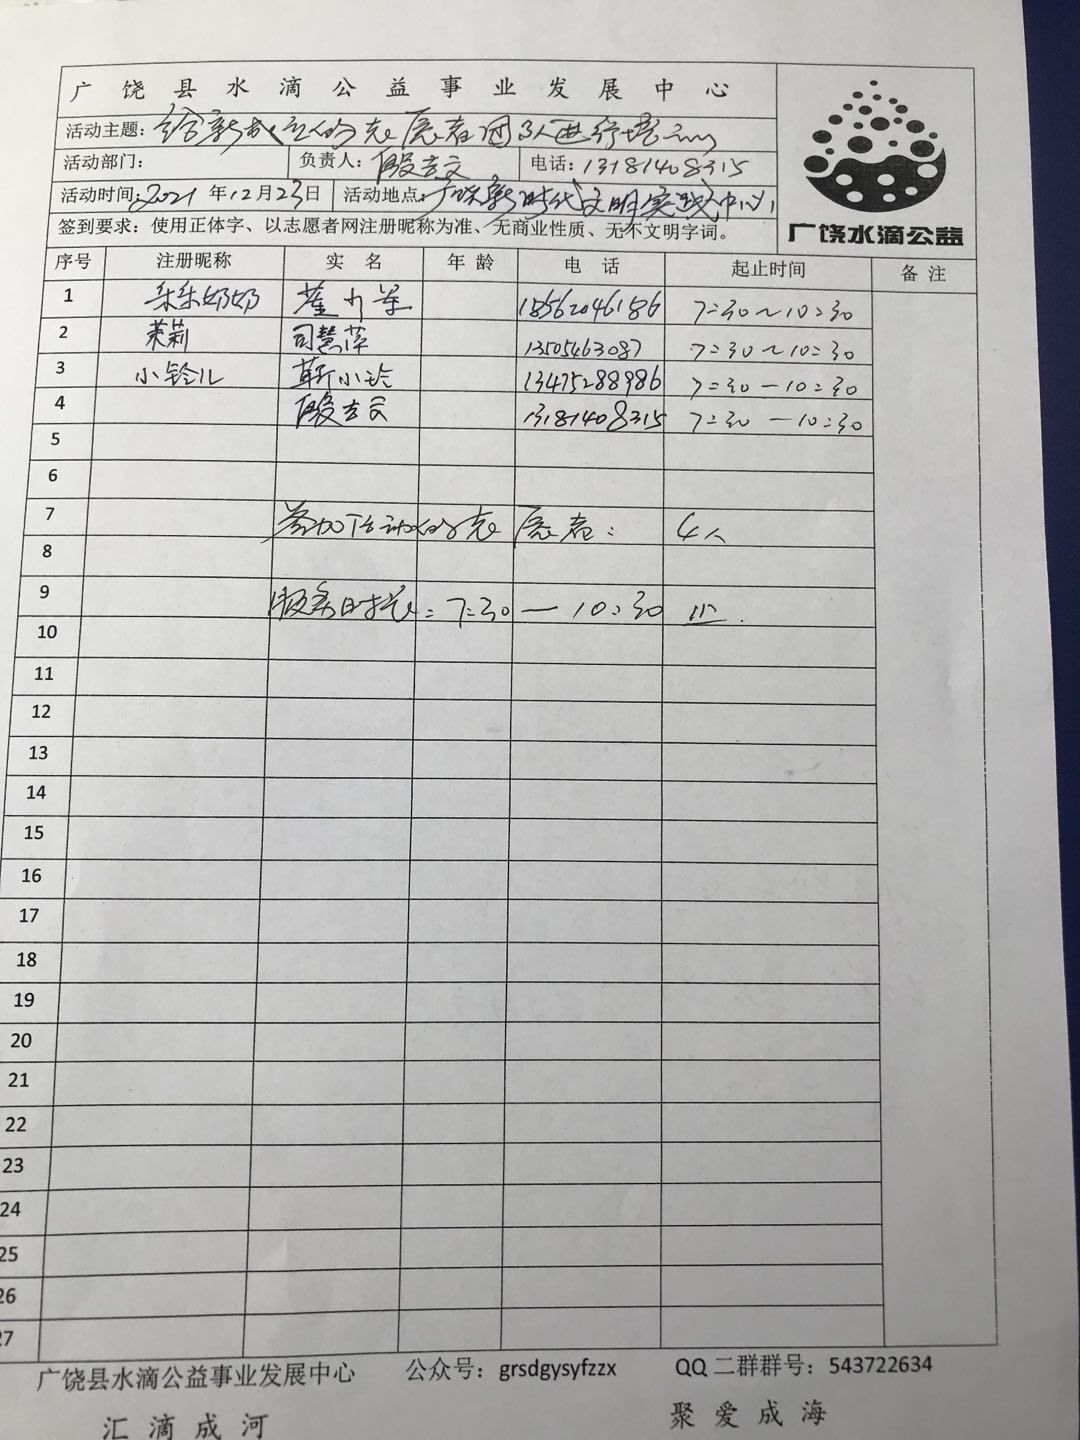 广饶县水滴公益事业发展中心
活动主题：给新成立的志愿者团队进行培训
活动部门： 负责人：殷吉文 电话：13181408315
活动时间：2021年12月23日 活动地点：广饶新时代文明实践中心
签到要求：使用正体字、以志愿者网注册昵称为准、无商业性质、无不文明字词。
广饶水滴公益
序号 注册昵称 实名 年龄 电话 起止时间 备注
1 朵朵奶奶 18562046186 7:30～10:30
2 茉莉 司慧萍 13505463087 7:30～10:30
3 小铃儿 靳小玲 13475288986 7:30—10:30
4 殷吉文 13181408315 7:30—10:30
5
6
7 参加活动的志愿者：4人
8
9 服务时长：7:30—10:30止.
10
11
12
13
14
15
16
17
18
19
20
21
22
23
24
25
26
27
广饶县水滴公益事业发展中心 公众号：grsdgysyfzzx QQ二群群号：543722634
汇滴成河 聚爱成海